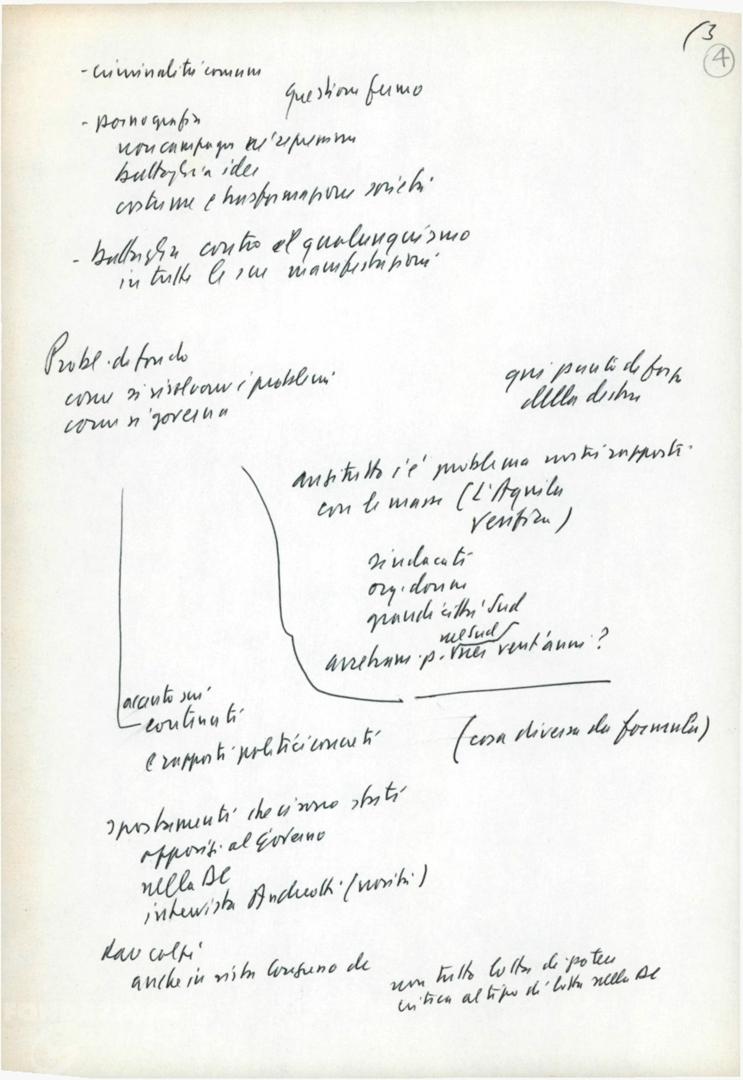 (3
4
- criminalità comune
questione fermo
- pornografia
non campagna né repressiva
battaglia idee
costume e trasformazione società
- battaglia contro il qualunquismo
in tutte le sue manifestazioni
Probl. di fondo
come si risolvono i problemi
come si governa
qui punto di forza
della destra
anzitutto c'è problema nostri rapporti
con le masse (L'Aquila
verifica)
sindacati
org. donne
grandi città Sud
nel Sud
arretram. p. vent'anni?
accento sui
contenuti
e rapporti politici concreti
(cosa diversa da formula)
spostamenti che ci sono stati
opposiz. al Governo
nella DC
intervista Andreotti (novità)
dare colpi
anche in vista Congresso dc
non tutto lotta di potere
critica al tipo di lotta nella DC